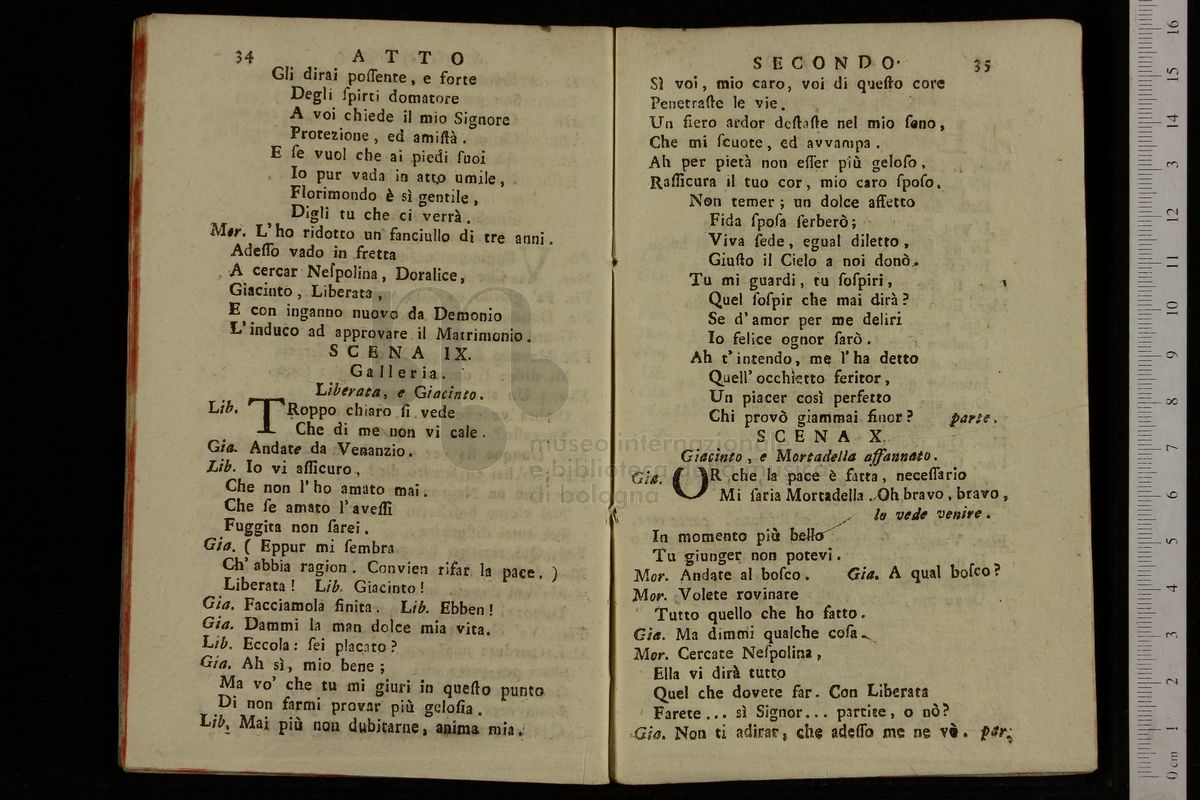 34 ATTO
Gli dirai poſſente, e forte
Degli ſpirti domatore
A voi chiede il mio Signore
Protezione, ed amiſtà.
E ſe vuol che ai piedi ſuoi
Io pur vada in atto umile,
Florimondo è sì gentile,
Digli tu che ci verrà.
Mor. L'ho ridotto un fanciullo di tre anni.
Adeſſo vado in fretta
A cercar Neſpolina, Doralice,
Giacinto, Liberata,
E con inganno nuovo da Demonio
L'induco ad approvare il Matrimonio.
SCENA IX.
Galleria.
Liberata, e Giacinto.
Lib. TRoppo chiaro ſi vede
Che di me non vi cale.
Gia. Andate da Venanzio.
Lib. Io vi aſſicuro,
Che non l'ho amato mai.
Che ſe amato l'aveſſi
Fuggita non ſarei.
Gia. ( Eppur mi ſembra
Ch'abbia ragion. Convien rifar la pace. )
Liberata! Lib. Giacinto!
Gia. Facciamola finita. Lib. Ebben!
Gia. Dammi la man dolce mia vita.
Lib. Eccola: ſei placato?
Gia. Ah sì, mio bene;
Ma vo' che tu mi giuri in queſto punto
Di non farmi provar più geloſia.
Lib. Mai più non dubitarne, anima mia.
SECONDO. 35
Sì voi, mio caro, voi di queſto core
Penetraſte le vie.
Un fiero ardor deſtaſte nel mio ſeno,
Che mi ſcuote, ed avvampa.
Ah per pietà non eſſer più geloſo,
Raſſicura il tuo cor, mio caro ſpoſo.
Non temer; un dolce affetto
Fida ſpoſa ſerberò;
Viva fede, egual diletto,
Giuſto il Cielo a noi donò.
Tu mi guardi, tu ſoſpiri,
Quel ſoſpir che mai dirà?
Se d'amor per me deliri
Io felice ognor ſarò.
Ah t'intendo, me l'ha detto
Quell'occhietto feritor,
Un piacer così perfetto
Chi provò giammai finor? parte.
SCENA X.
Giacinto, e Mortadella affannato.
Gia. OR che la pace è fatta, neceſſario
Mi ſaria Mortadella. Oh bravo, bravo,
lo vede venire.
In momento più bello
Tu giunger non potevi.
Mor. Andate al boſco. Gia. A qual boſco?
Mor. Volete rovinare
Tutto quello che ho fatto.
Gia. Ma dimmi qualche coſa.
Mor. Cercate Neſpolina,
Ella vi dirà tutto
Quel che dovete far. Con Liberata
Farete... sì Signor... partite, o nò?
Gia. Non ti adirar, che adeſſo me ne vò. par.
museo internazionale
e biblioteca della musica
di bologna
0 cm 1 2 3 4 5 6 7 8 9 10 11 12 13 14 15 16